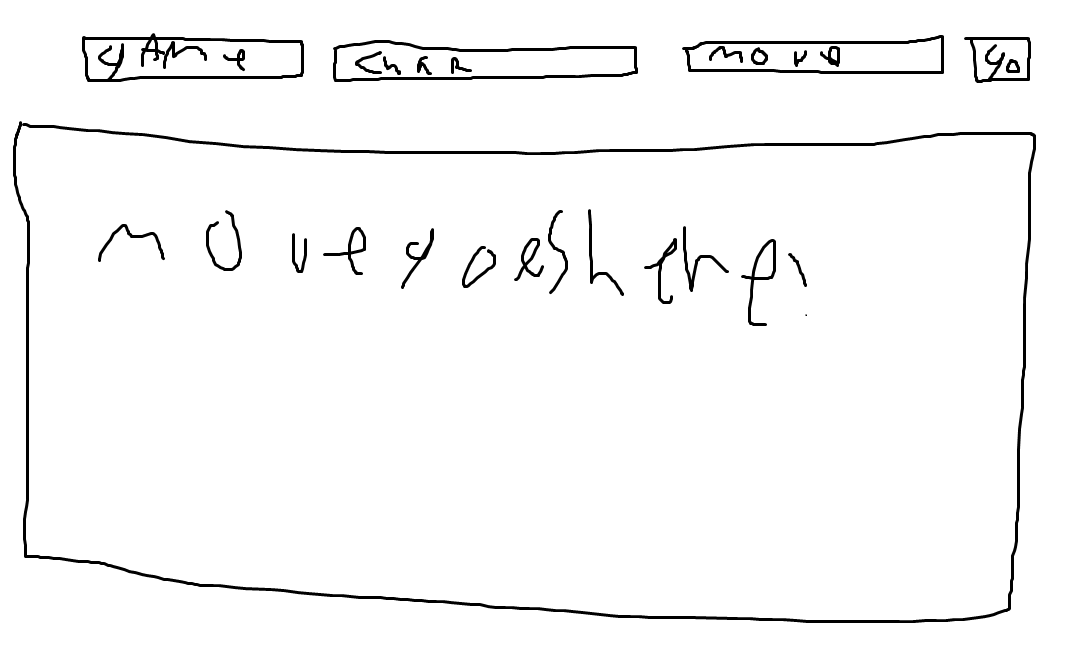 gAMe
ChAR
move
go
move goes here